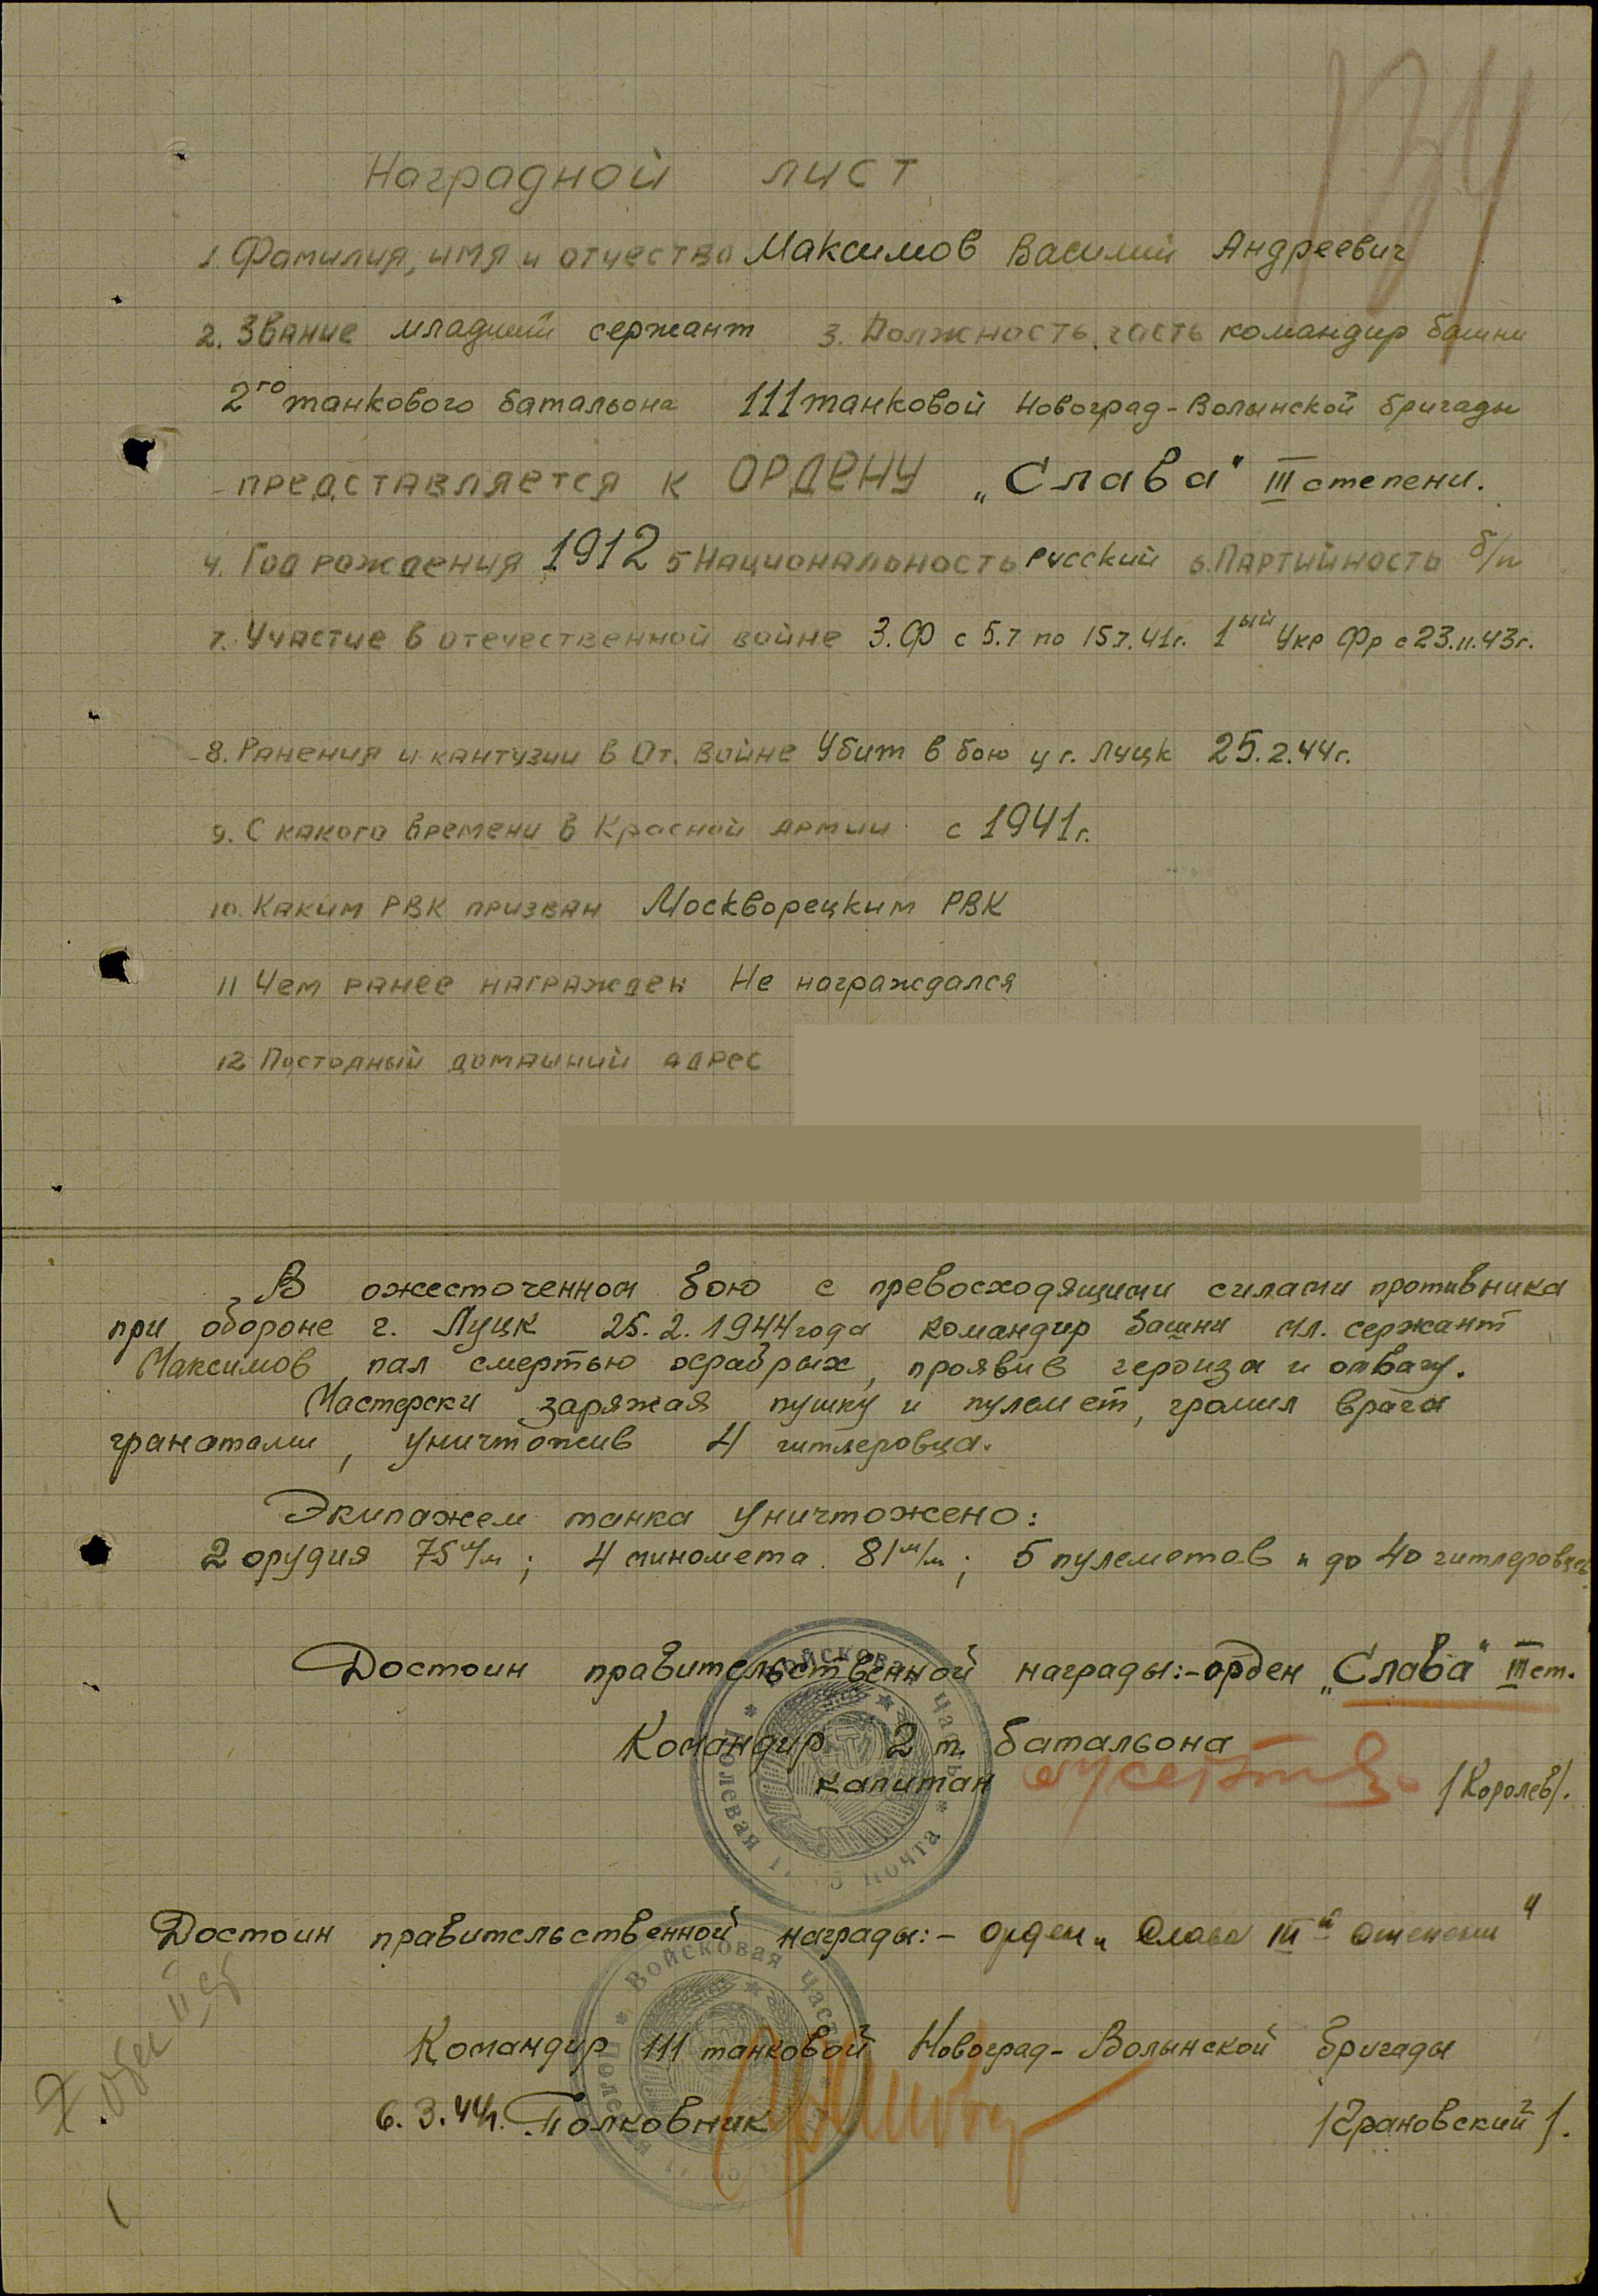 134
Наградной лист
1. Фамилия, имя и отчество Максимов Василий Андреевич
2. Звание младший сержант 3. Должность, часть командир башни
2го танкового батальона 111 танковой Новоград-Волынской бригады
представляется к ОРДЕНУ „Слава" III степени.
4. Год рождения 1912 5 Национальность русский 6. Партийность б/п
7. Участие в отечественной войне З.Ф с 5.7 по 15.7.41г. 1ый Укр Фр с 23.11.43г.
8. Ранения и кантузии в От. Войне Убит в бою у г. Луцк 25.2.44г.
9. С какого времени в Красной Армии с 1941г.
10. Каким РВК призван Москворецким РВК
11 Чем ранее награжден Не награждался
12 Постоянный домашний адрес
В ожесточенном бою с превосходящими силами противника
при обороне г. Луцк 25.2.1944 года командир башни мл. сержант
Максимов пал смертью храбрых, проявив героизм и отвагу.
Мастерски заряжая пушку и пулемет, громил врага
гранатами, уничтожив 4 гитлеровца.
Экипажем танка уничтожено:
2 орудия 75 м/м; 4 миномета 81 м/м; 5 пулеметов и до 40 гитлеровцев.
Достоин правительственной награды:- орден „Слава" III ст.
Командир 2 т. батальона
капитан /Королев/.
Войсковая часть * Полевая почта *
Достоин правительственной награды:- Орден „Слава IIIй степени"
Командир 111 танковой Новоград-Волынской бригады
6.3.44г. Полковник /Грановский/.
Войсковая часть * Полевая